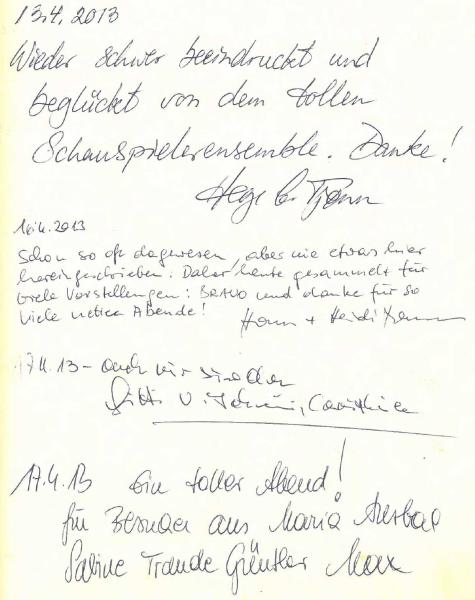 13.4.2013
Wieder schwer beeindruckt und
beglückt von dem tollen
Schauspielerensemble. Danke!
16.4.2013
Schon so oft dagewesen, aber nie etwas hier
hereingeschrieben. Daher heute gesammelt für
viele Vorstellungen: BRAVO und danke für so
viele nette Abende!
+ Heidi
17.4.13 - auch wir
17.4.13 Ein toller Abend!
für Besucher aus Maria
Sabine Traude Günther Max